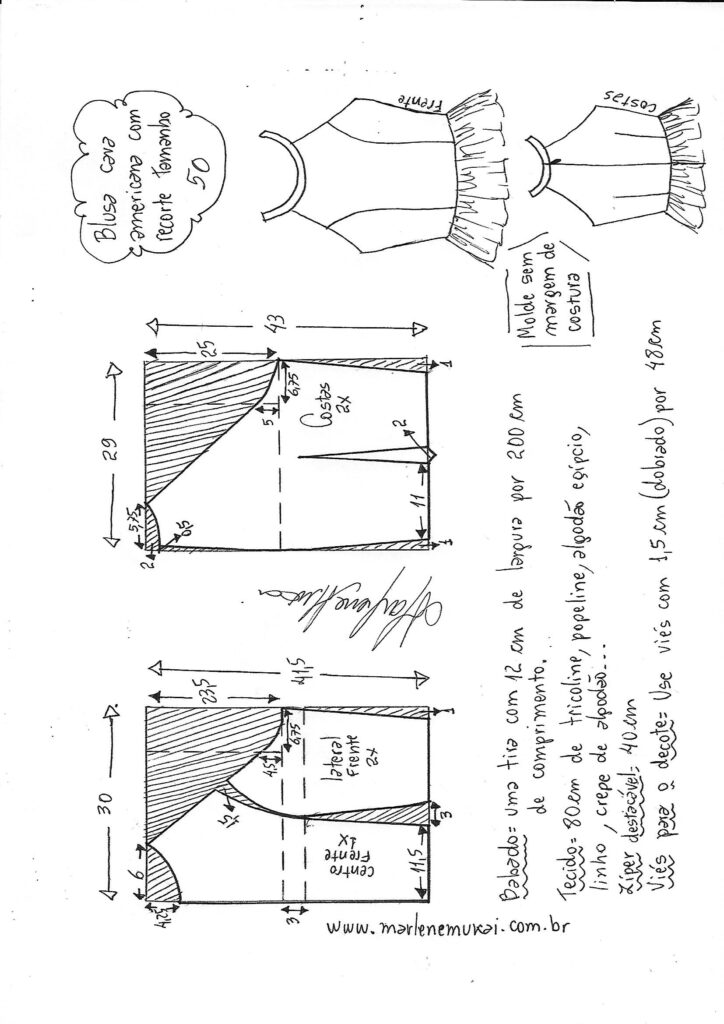 Blusa cava
americana com
recorte tamanho
50
Frente
Costas
Molde sem
margem de
costura
29
5,75
2
0,5
25
43
5
6,75
Costas
2X
2
11
1
1
30
6
4,25
23,5
41,5
4,5
6,75
1,5
lateral
Frente
2X
centro
Frente
1X
3
11,5
3
1
www.marlenemukai.com.br
Babado= uma tira com 12 cm de largura por 200 cm
de comprimento.
Tecido= 80cm de tricoline, popeline, algodão egípcio,
linho, crepe de algodão...
Zíper destacável= 40cm
Viés para o decote= Use viés com 1,5cm (dobrado) por 48cm